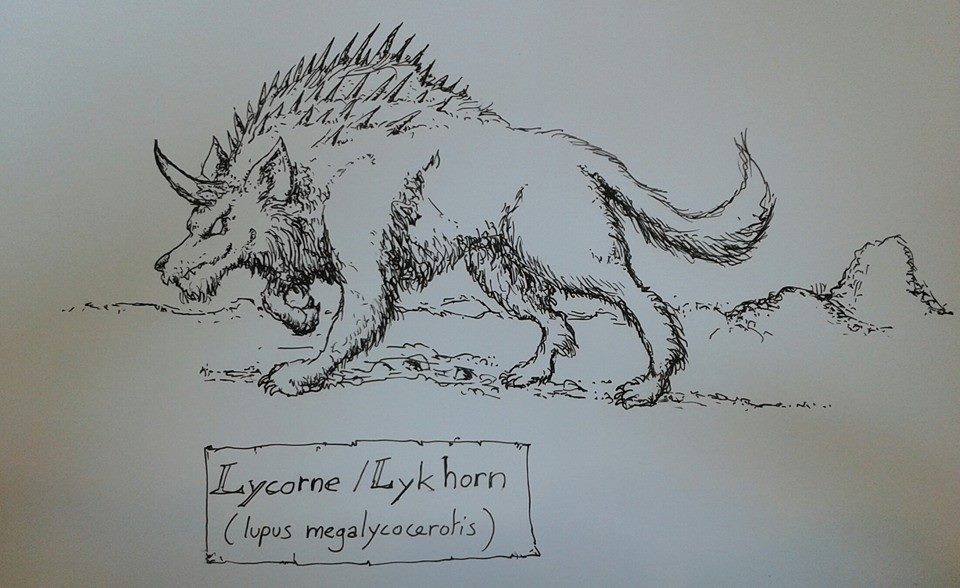 Lycorne / Lykhorn
(lupus megalycocerotis)